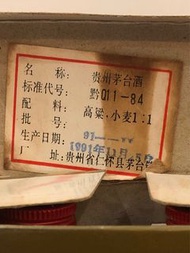 名 称: 贵州茅台酒
标准代号: 黔Q11-84
配 料: 高粱、小麦1:1
批 号: 91-
生产日期: 1991年11月5日
厂 址: 贵州省仁怀县茅台